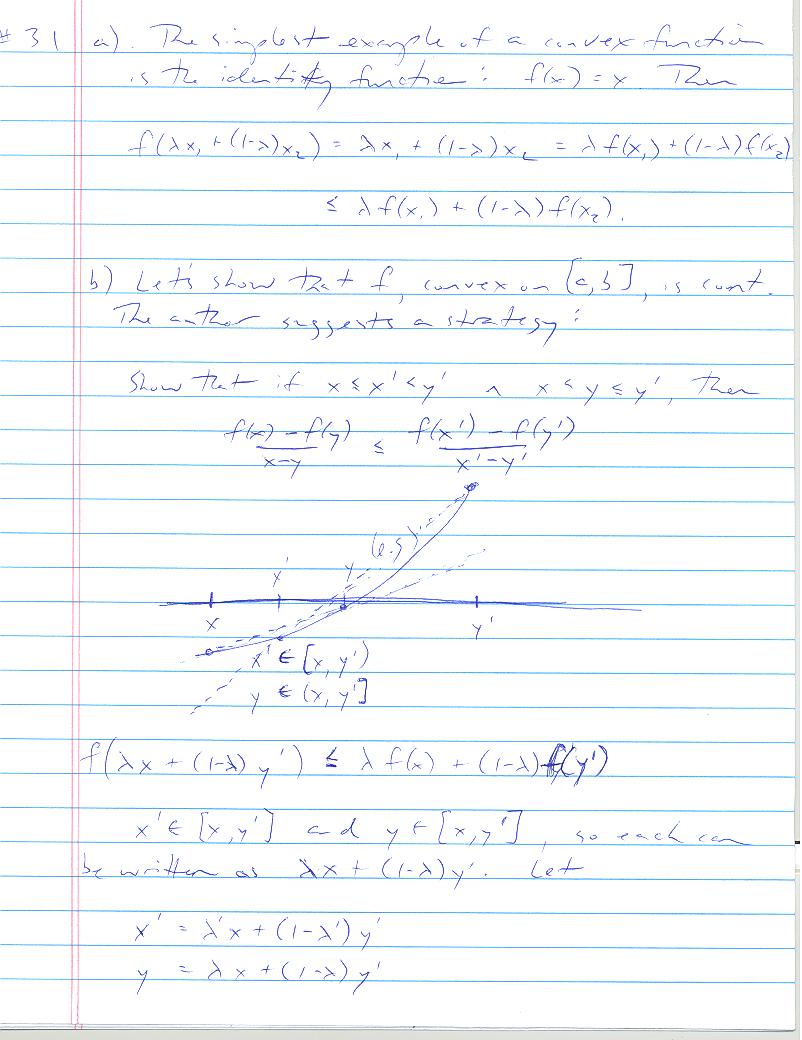 # 31 a). The simplest example of a convex function
is the identity function: f(x) = x Then
f(λx₁ + (1-λ)x₂) = λx₁ + (1-λ)x₂ = λf(x₁) + (1-λ)f(x₂)
≤ λf(x₁) + (1-λ)f(x₂).
b) Let's show that f, convex on [a,b], is cont.
The author suggests a strategy:
Show that if x ≤ x' < y' ∧ x < y ≤ y', then
f(x) - f(y) / x-y ≤ f(x') - f(y') / x'-y'
(e.g)
x' y
x y'
x' ∈ [x, y')
y ∈ (x, y']
f(λx + (1-λ)y') ≤ λf(x) + (1-λ)f(y')
x' ∈ [x,y'] and y ∈ [x,y'], so each can
be written as λx + (1-λ)y'. Let
x' = λ'x + (1-λ')y'
y = λx + (1-λ)y'